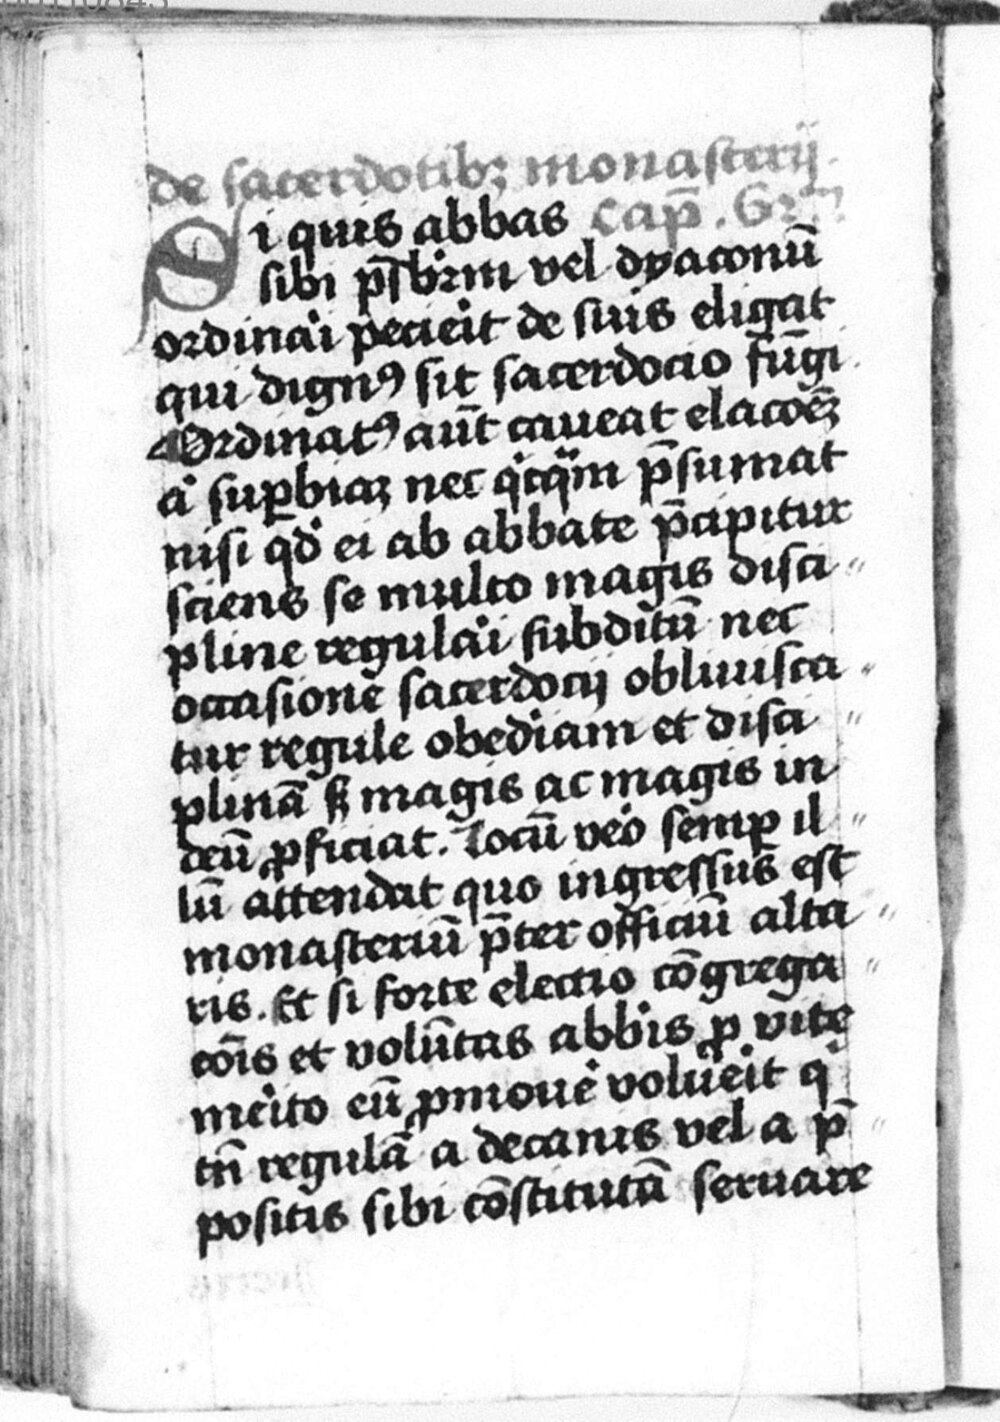 de sacerdotibꝫ monasterij.
Si quis abbas Cap̄.
sibi p̄sbr̄m vel dyaconū
ordinaꝛi pecieit de suis eligat
qui dignꝰ sit sacerdocio fūgi.
Ordinatꝰ aūt caueat elacōeꝫ
a' suꝑbiaꝫ nec qͥcqͣm p̄sumat
nisi qd' ei ab abbate p̄cipitur
sciens se multo magis disci〃
pline regula'i subditū nec
occasione sacerdocij obliuisca〃
tur regule obediam et disci〃
plinā sꝫ magis ac magis in
deū ꝓficiat. Locū ve'o semꝑ il〃
lū attendat quo ingressus est
monasteriū p̄ter officiū alta〃
ris. Et si forte electio cōgrega〃
cōis et volūtas abbis ꝓ vite
me'ito eū ꝓmoue' volue'it qͥ
tn̄ regulā a decanis vel a p̄〃
positis sibi cōstitutā seruare